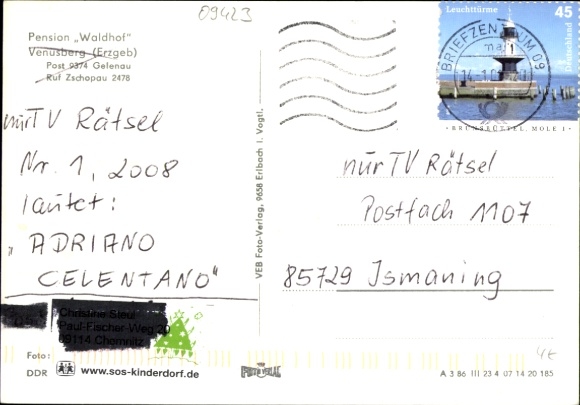 09423
Pension „Waldhof"
Venusberg (Erzgeb)
Post 9374 Gelenau
Ruf Zschopau 2478
nurTV Rätsel
Nr. 1, 2008
lautet:
„ADRIANO
CELENTANO"
Christine Steul
Paul-Fischer-Weg 20
09114 Chemnitz
Foto:
DDR
www.sos-kinderdorf.de
VEB Foto-Verlag, 9658 Erlbach i. Vogtl.
Leuchttürme
45
Deutschland
BRIEFZENTRUM 09
BRUNSBÜTTEL, MOLE 1
nurTV Rätsel
Postfach 1107
85729 Ismaning
4€
A 3 86 III 23 4 07 14 20 185